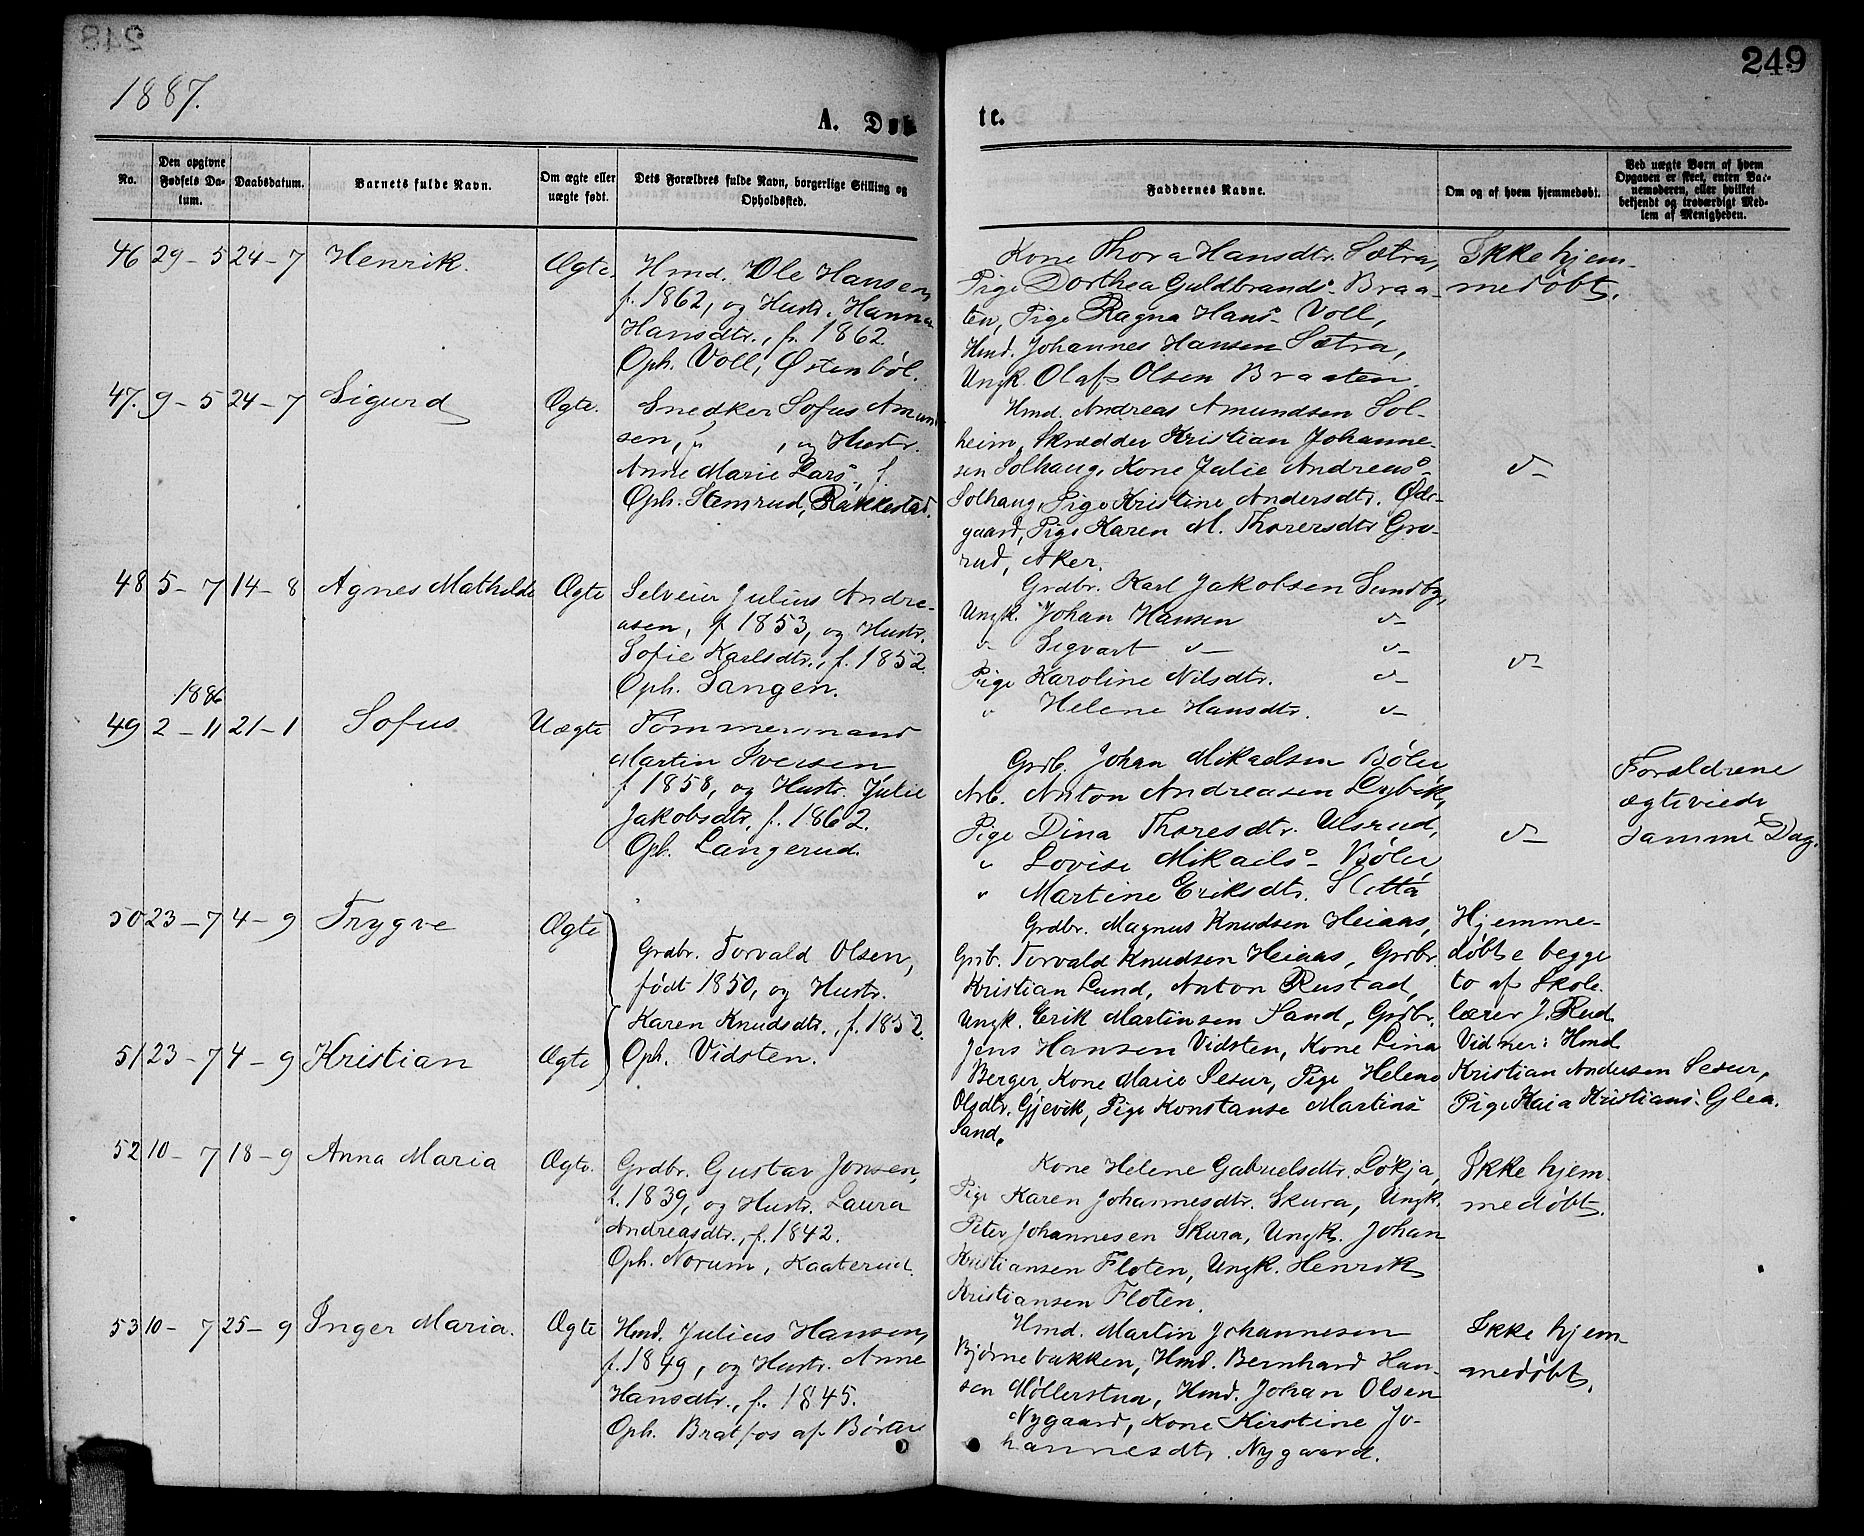 248
249
1887.
A. Døb
te.
No.
Den opgivne
Fødsels Da-
tum.
Daabsdatum.
Barnets fulde Navn.
Om ægte eller
uægte født.
Dets Forældres fulde Navn, borgerlige Stilling og
Opholdssted.
Faddernes Navne.
Om og af hvem hjemmedøbt.
Ved uægte Børn af hvem
Opgaven er skeet, enten Bar-
nemoderen, eller hvilket
bekjendt og troværdigt Med-
lem af Menigheden.
46 29-5 24-7 Henrik. Ægte.
Hmd. Ole Hansen,
f. 1862, og Hustr. Hanna
Hansdtr., f. 1862.
Oph. Voll, Østenbøl.
Kone Thora Hansdtr. Sætra,
Pige Dorthea Guldbrands- Braa-
ten, Pige Ragna Hans- Voll,
Hmd. Johannes Hansen Sætra,
Ungk. Olaf Olsen Braaten.
Ikke hjem-
medøbt.
47. 9-5 24-7 Sigurd Ægte.
Snedker Sofus Amund
sen, f. , og Hustr.
Anne Marie Lars-, f.
Oph. Stemrud, Rakkestad.
Hmd. Andreas Amundsen Sol-
heim, Skrædder Kristian Johanne-
sen Solhaug, Kone Julie Andreas-
Solhaug, Pige Kristine Andersdtr. Øde-
gaard, Pige Karen M. Thorersdtr Gro-
rud, Aker.
d-
48 5-7 14-8 Agnes Mathilde Ægte
Selveier Julius Andre-
asen, f 1853, og Hustr.
Sofie Karlsdtr., f. 1852
Oph. Sangen.
Grdbr. Karl Jakobsen Sundby,
Ungk. Johan Hansen d-
d- Sigvart d- d-
Pige Karoline Nilsdtr. d-
" Helene Hansdtr. d-
d-
1886
49 2-11 21-1 Sofus Uægte
Tømmermand
Martin Iversen
f 1858, og Hustr. Julie
Jakobsdtr., f. 1862.
Oph. Langerud.
Grdb. Johan Mikaelsen Bøler
Arb. Anton Andreasen Lybæk,
Pige Dina Thoresdtr. Ulsrud,
" Lovise Mikaels- Bøler
" Martine Eriksdtr. Sletta
d-
Forældrene
ægteviede
samme Dag.
50 23-7 4-9 Trygve Ægte
Grdbr. Torvald Olsen,
født 1850, og Hustr.
Karen Knudsdtr., f. 1852.
51 23-7 4-9 Kristian Ægte
Oph. Vidsten.
Grdbr. Magnus Knudsen Heiaas,
Grb. Torvald Knudsen Heiaas, Grdbr.
Kristian Lund, Anton Rustad,
Ungk. Erik Martinsen Sand, Grdbr.
Jens Hansen Vidsten, Kone Lina
Berger, Kone Marie Sesur, Pige Helene
Olsdtr. Gjevik, Pige Konstanse Martins-
Sand.
Hjemme-
døbte begge
to af Skole-
lærer J. Rud.
Vidner: Hmd.
Kristian Andersen Sesur,
Pige Kaia Kristians- Glea.
52 10-7 18-9 Anna Maria Ægte.
Grdbr. Gustav Jonsen,
f. 1839, og Hustr. Laura
Andreasdtr., f. 1842.
Oph. Norum, Kaaterud.
Kone Helene Gabrielsdtr. Løkja,
Pige Karen Johannesdtr. Skura, Ungk.
Peter Johannesen Skura, Ungk. Johan
Kristiansen Floten, Ungk. Henrik
Kristiansen Floten.
Ikke hjem-
medøbt.
53 10-7 25-9 Inger Maria. Ægte
Hmd. Julius Hansen,
f. 1849, og Hustr. Anne
Hansdtr., f. 1845.
Oph. Bratfos af Børter
Hmd. Martin Johannesen
Bjørnebakken, Hmd. Bernhard Han-
sen Møllerstua, Hmd. Johan Olsen
Nygaard, Kone Kirstine Jo-
hannesdtr. Nygaard.
Ikke hjem-
medøbt.